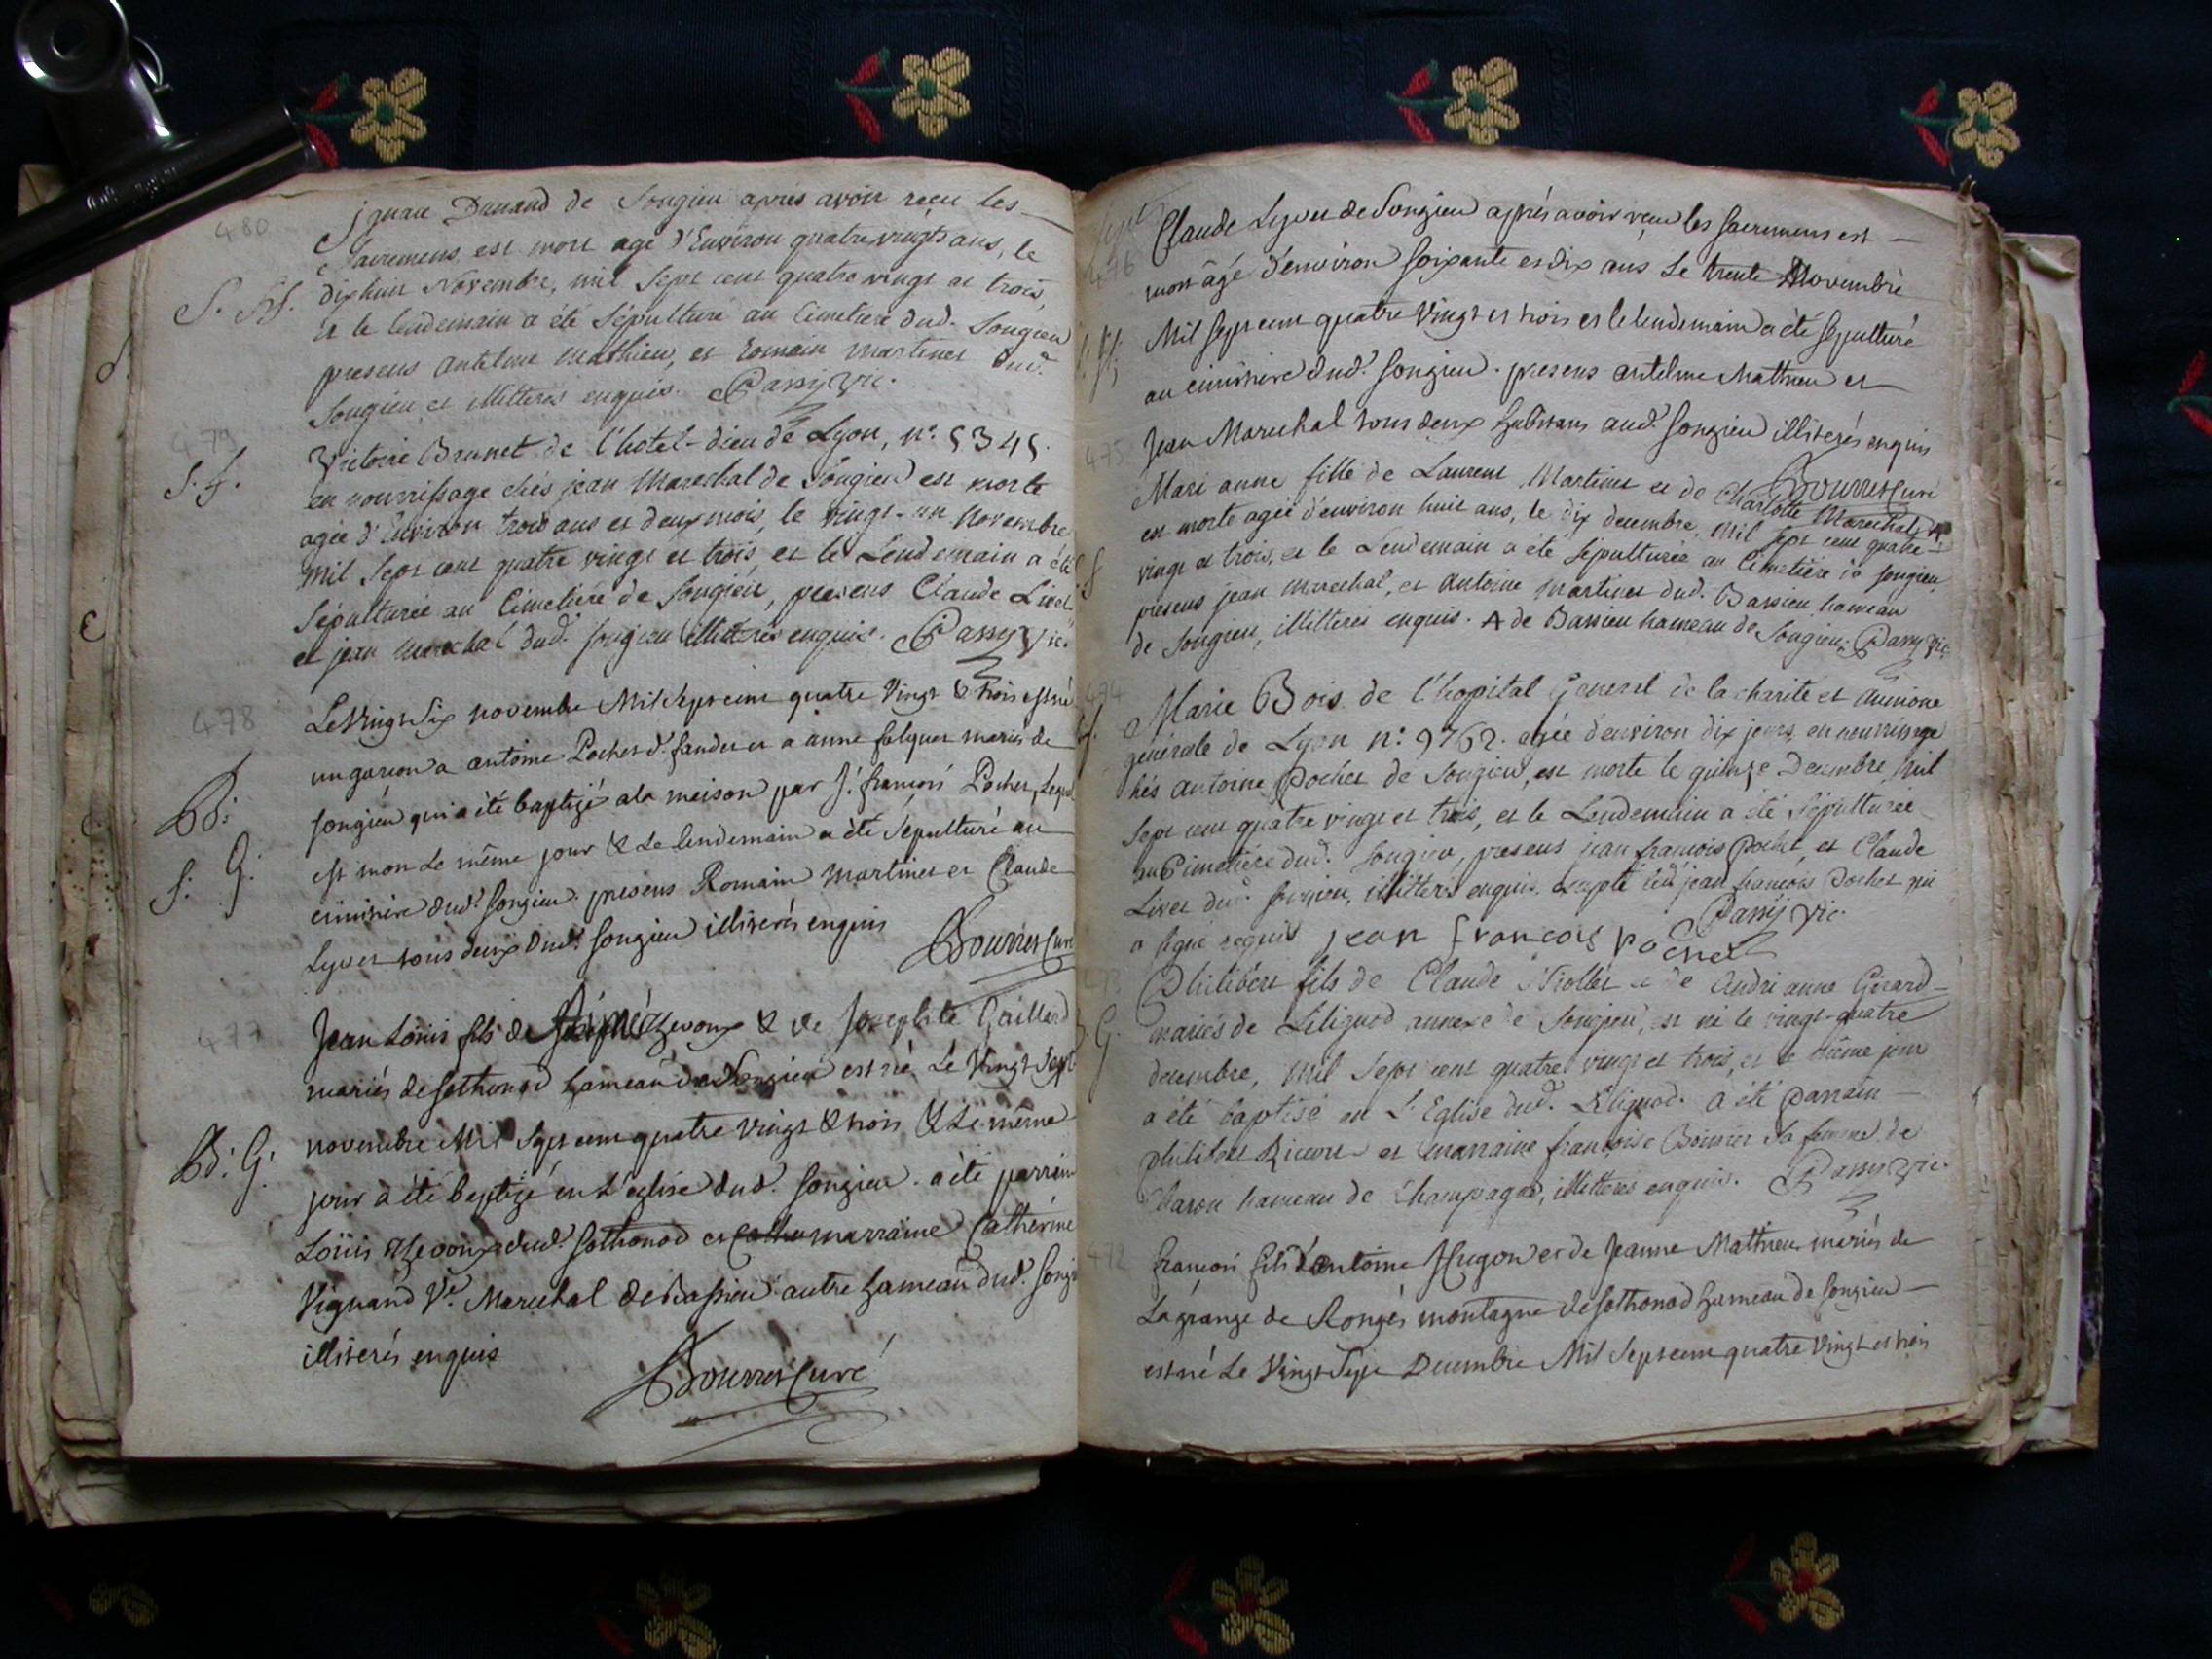 480
Ignace Durand de Songieu apres avoir reçu les
Sacremens, est mort agé d'Environ quatre vingts ans, le
S. H. dixhuit Novembre, mil Sept cent quatre vingt et trois,
et le lendemain a été Sépulturé au Cimetiere dud. Songieu
presens antelme Mathieu, et Romain Martinet dud.
Songieu et illitterés enquis. Passy Vic.
479
S. f. Victoire Brunet de l'hotel-dieu de Lyon, n° 5345.
en nourrissage chés jean Marechal de Songieu est morte
agée d'Environ trois ans et deux mois, le vingt-un Novembre
Mil Sept cent quatre vingt et trois, et le Lendemain a été
Sépulturée au Cimetiere de Songieu, presens Claude Livet
et jean Marechal dud. Songieu illitterés enquis. Passy Vic.
478
Le Vingt Six novembre Mil Sept cent quatre Vingt & trois est né
un garcon a antoine Pochet et a anne falquet mariés de
Bd: Songieu qui a été baptizé a la maison par J. françois Pochet, Lequel
S: G: est mort Le même jour & Le lendemain a été Sépulturé au
cimitiere dud. Songieu. presens Romain Martinet et Claude
Lyvet tous deux dud. Songieu illiterés enquis Bourret Curé
477
Jean Loüis fils de & de Josephte Gaillard
mariés de Sothonod hameau de Songieu est né Le Vingt Sept
novembre Mil Sept cent quatre Vingt & trois & Le même
Bd: G: jour a été baptizé en L'eglise dud. Songieu. a été parrain
Loüis dud. Sothonod et marraine Catherine
Vignand Ve. Marechal de Bassieu autre hameau dud. Songieu
illiterés enquis
Bourret Curé
476
Claude Lyvet de Songieu après avoir reçu les Sacremens est
mort âgé d'environ Soixante et dix ans Le trente Novembre
Mil Sept cent quatre Vingt et trois et le lendemain a été Sepulturé
au cimitiere dud. Songieu. presens antelme Mathieu et
Jean Marechal tous deux habitans aud. Songieu illiterés enquis
Bourret Curé
475
Mari anne fille de Laurent Martinet et de Charlotte Marechal A
est morte agée d'environ huit ans, le dix decembre, Mil Sept cent quatre
vingt et trois, et le Lendemain a été Sépulturée au Cimetière de Songieu
presens jean Marechal, et Antoine Martinet dud. Bassieu hameau
de Songieu, illitterés enquis. A de Bassieu hameau de Songieu. Passy Vic.
474
Marie Bois de l'hopital General de la charité et Aumone
générale de Lyon n° 9762. agée d'environ dix jours, en nourrissage
chés Antoine Pochet de Songieu, est morte le quinze Decembre Mil
Sept cent quatre vingt et trois, et le Lendemain a été Sépulturée
au Cimetiere dud. Songieu, presens jean françois Pochet et Claude
Livet dud. Songieu, illitterés enquis. Excepté led. jean françois Pochet qui
a signé requis Passy Vic.
jean francois pochet
Philibert fils de Claude et de Andri anne Girard
G. mariés de Lilignod annexe de Songieu, est né le vingt-quatre
decembre, Mil Sept cent quatre vingt et trois, et le même jour
a été baptisé en L'Eglise dud. Lilignod. a été Parrain
philibert et Marraine françoise Sa femme de
Charon hameau de Champagne, illitterés enquis. Passy Vic.
472
françois fils d'antoine Hugon et de Jeanne Mathieu mariés de
La grange de Rongés montagne de Sothonod hameau de Songieu
est né Le Vingt Sept Decembre Mil Sept cent quatre Vingt et trois